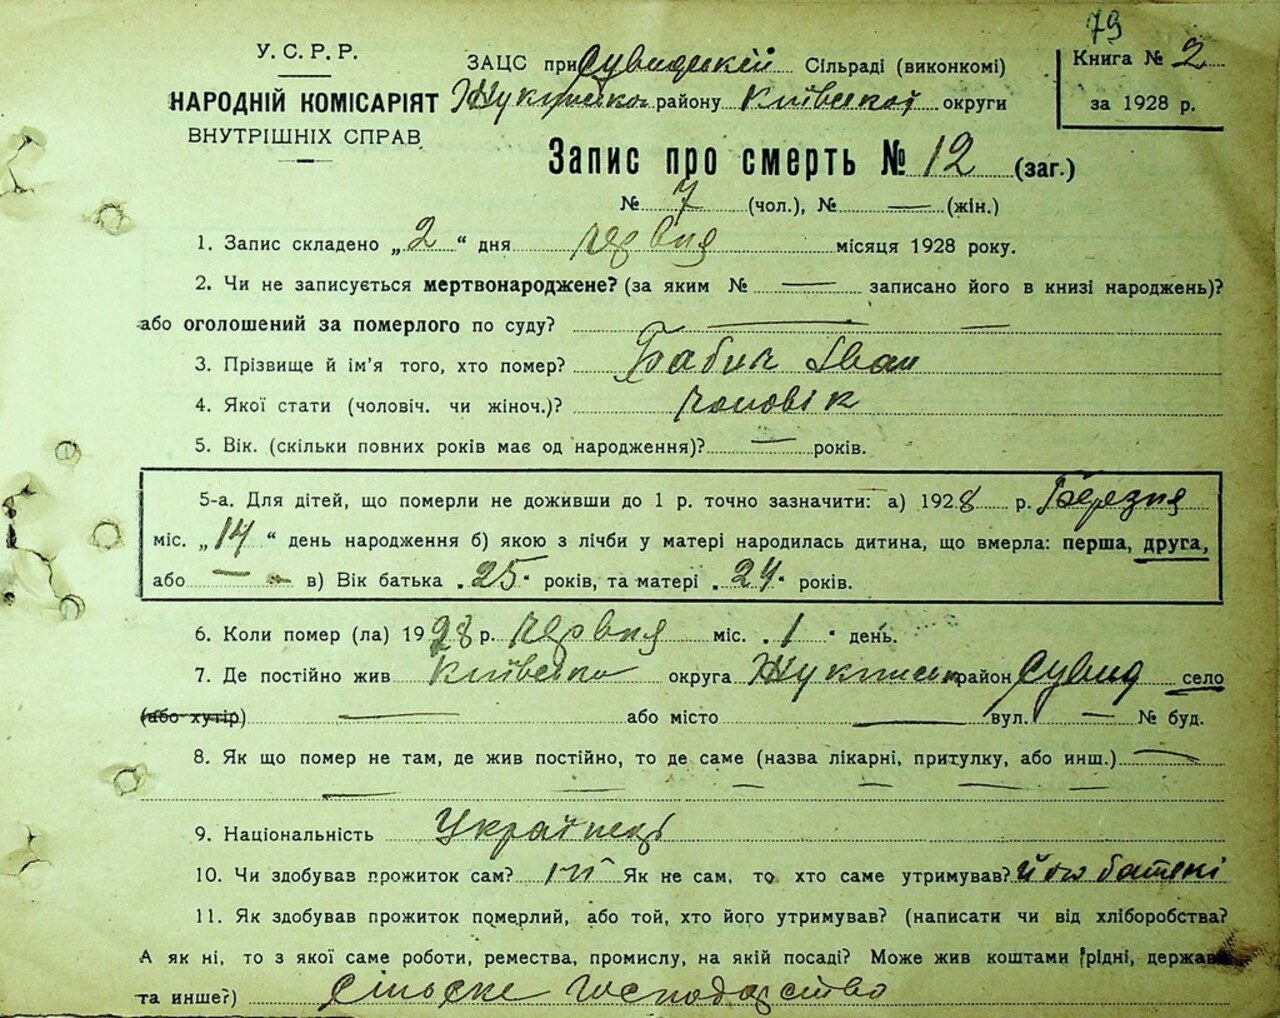 79
У. С. Р. Р.
НАРОДНІЙ КОМІСАРІЯТ
ВНУТРІШНІХ СПРАВ
ЗАЦС при Сувидській Сільраді (виконкомі)
району Київської округи
Книга № 2
за 1928 р.
Запис про смерть № 12 (заг.)
№ 7 (чол.), № — (жін.)
1. Запис складено „2“ дня червня місяця 1928 року.
2. Чи не записується мертвонароджене? (за яким № — записано його в книзі народжень)?
або оголошений за померлого по суду? — —
3. Прізвище й ім'я того, хто помер? Бабич Іван
4. Якої стати (чоловіч. чи жіноч.)? чоловік
5. Вік. (скільки повних років має од народження)? — років.
5-а. Для дітей, що померли не доживши до 1 р. точно зазначити: а) 1928 р. Березня
міс. „14“ день народження б) якою з лічби у матері народилась дитина, що вмерла: перша, друга,
або — в) Вік батька „25“ років, та матері „24“ років.
6. Коли помер (ла) 1928 р. червня міс. „1“ день.
7. Де постійно жив Київська округа район Сувид село
(або хутір) — або місто — вул. — № буд.
8. Як що помер не там, де жив постійно, то де саме (назва лікарні, притулку, або инш.) —
— — — — — —
9. Національність Українець
10. Чи здобував прожиток сам? ні Як не сам, то хто саме утримував? його батькі
11. Як здобував прожиток померлий, або той, хто його утримував? (написати чи від хліборобства?
А як ні, то з якої саме роботи, ремества, промислу, на якій посаді? Може жив коштами рідні, держави
та инше?) сільске господарство